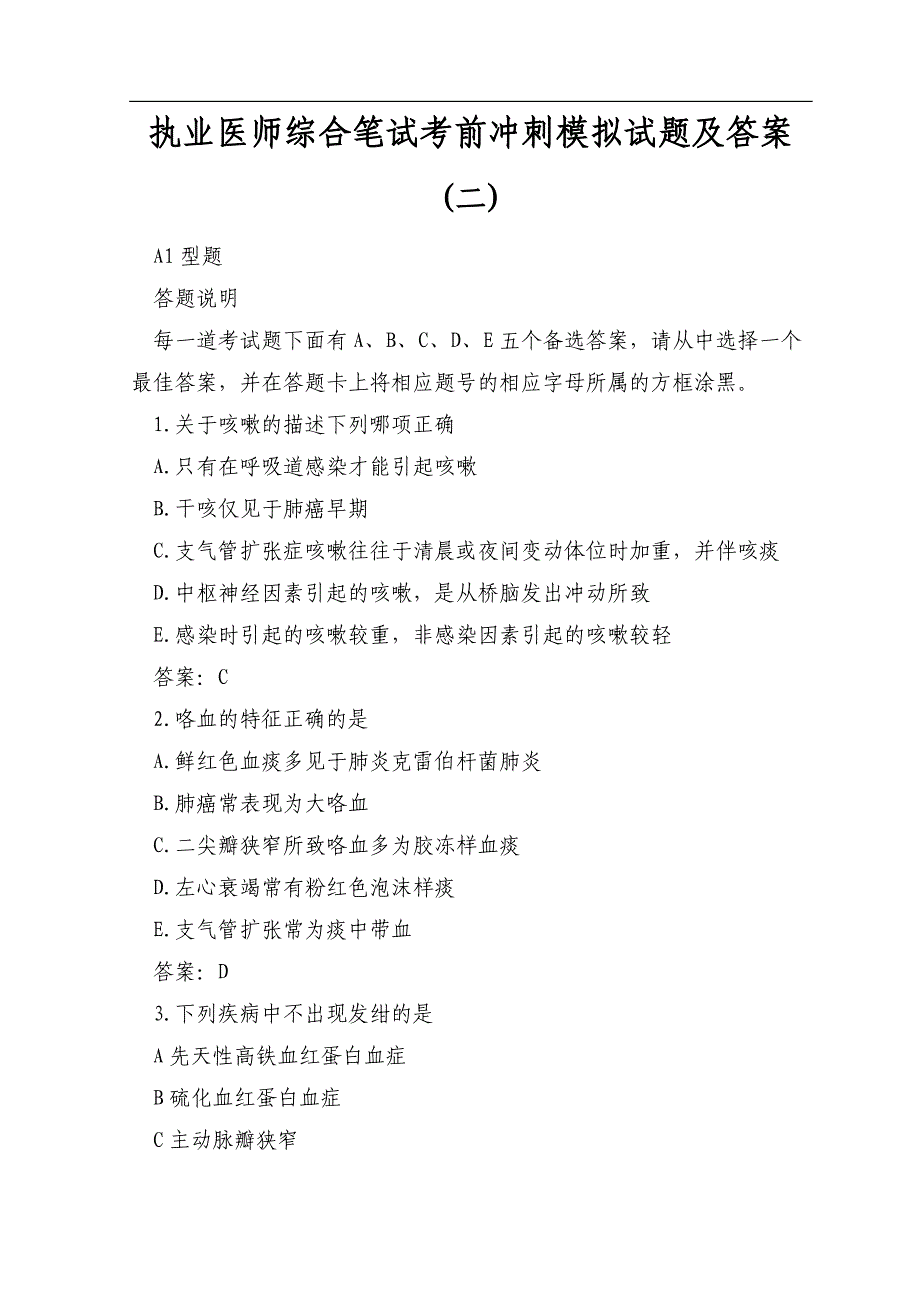 执业医师综合笔试考前冲刺模拟试题及答案
(二)
A1 型题
答题说明
每一道考试题下面有 A、B、C、D、E 五个备选答案，请从中选择一个
最佳答案，并在答题卡上将相应题号的相应字母所属的方框涂黑。
1.关于咳嗽的描述下列哪项正确
A.只有在呼吸道感染才能引起咳嗽
B.干咳仅见于肺癌早期
C.支气管扩张症咳嗽往往于清晨或夜间变动体位时加重，并伴咳痰
D.中枢神经因素引起的咳嗽，是从桥脑发出冲动所致
E.感染时引起的咳嗽较重，非感染因素引起的咳嗽较轻
答案：C
2.咯血的特征正确的是
A.鲜红色血痰多见于肺炎克雷伯杆菌肺炎
B.肺癌常表现为大咯血
C.二尖瓣狭窄所致咯血多为胶冻样血痰
D.左心衰竭常有粉红色泡沫样痰
E.支气管扩张常为痰中带血
答案：D
3.下列疾病中不出现发绀的是
A 先天性高铁血红蛋白血症
B 硫化血红蛋白血症
C 主动脉瓣狭窄